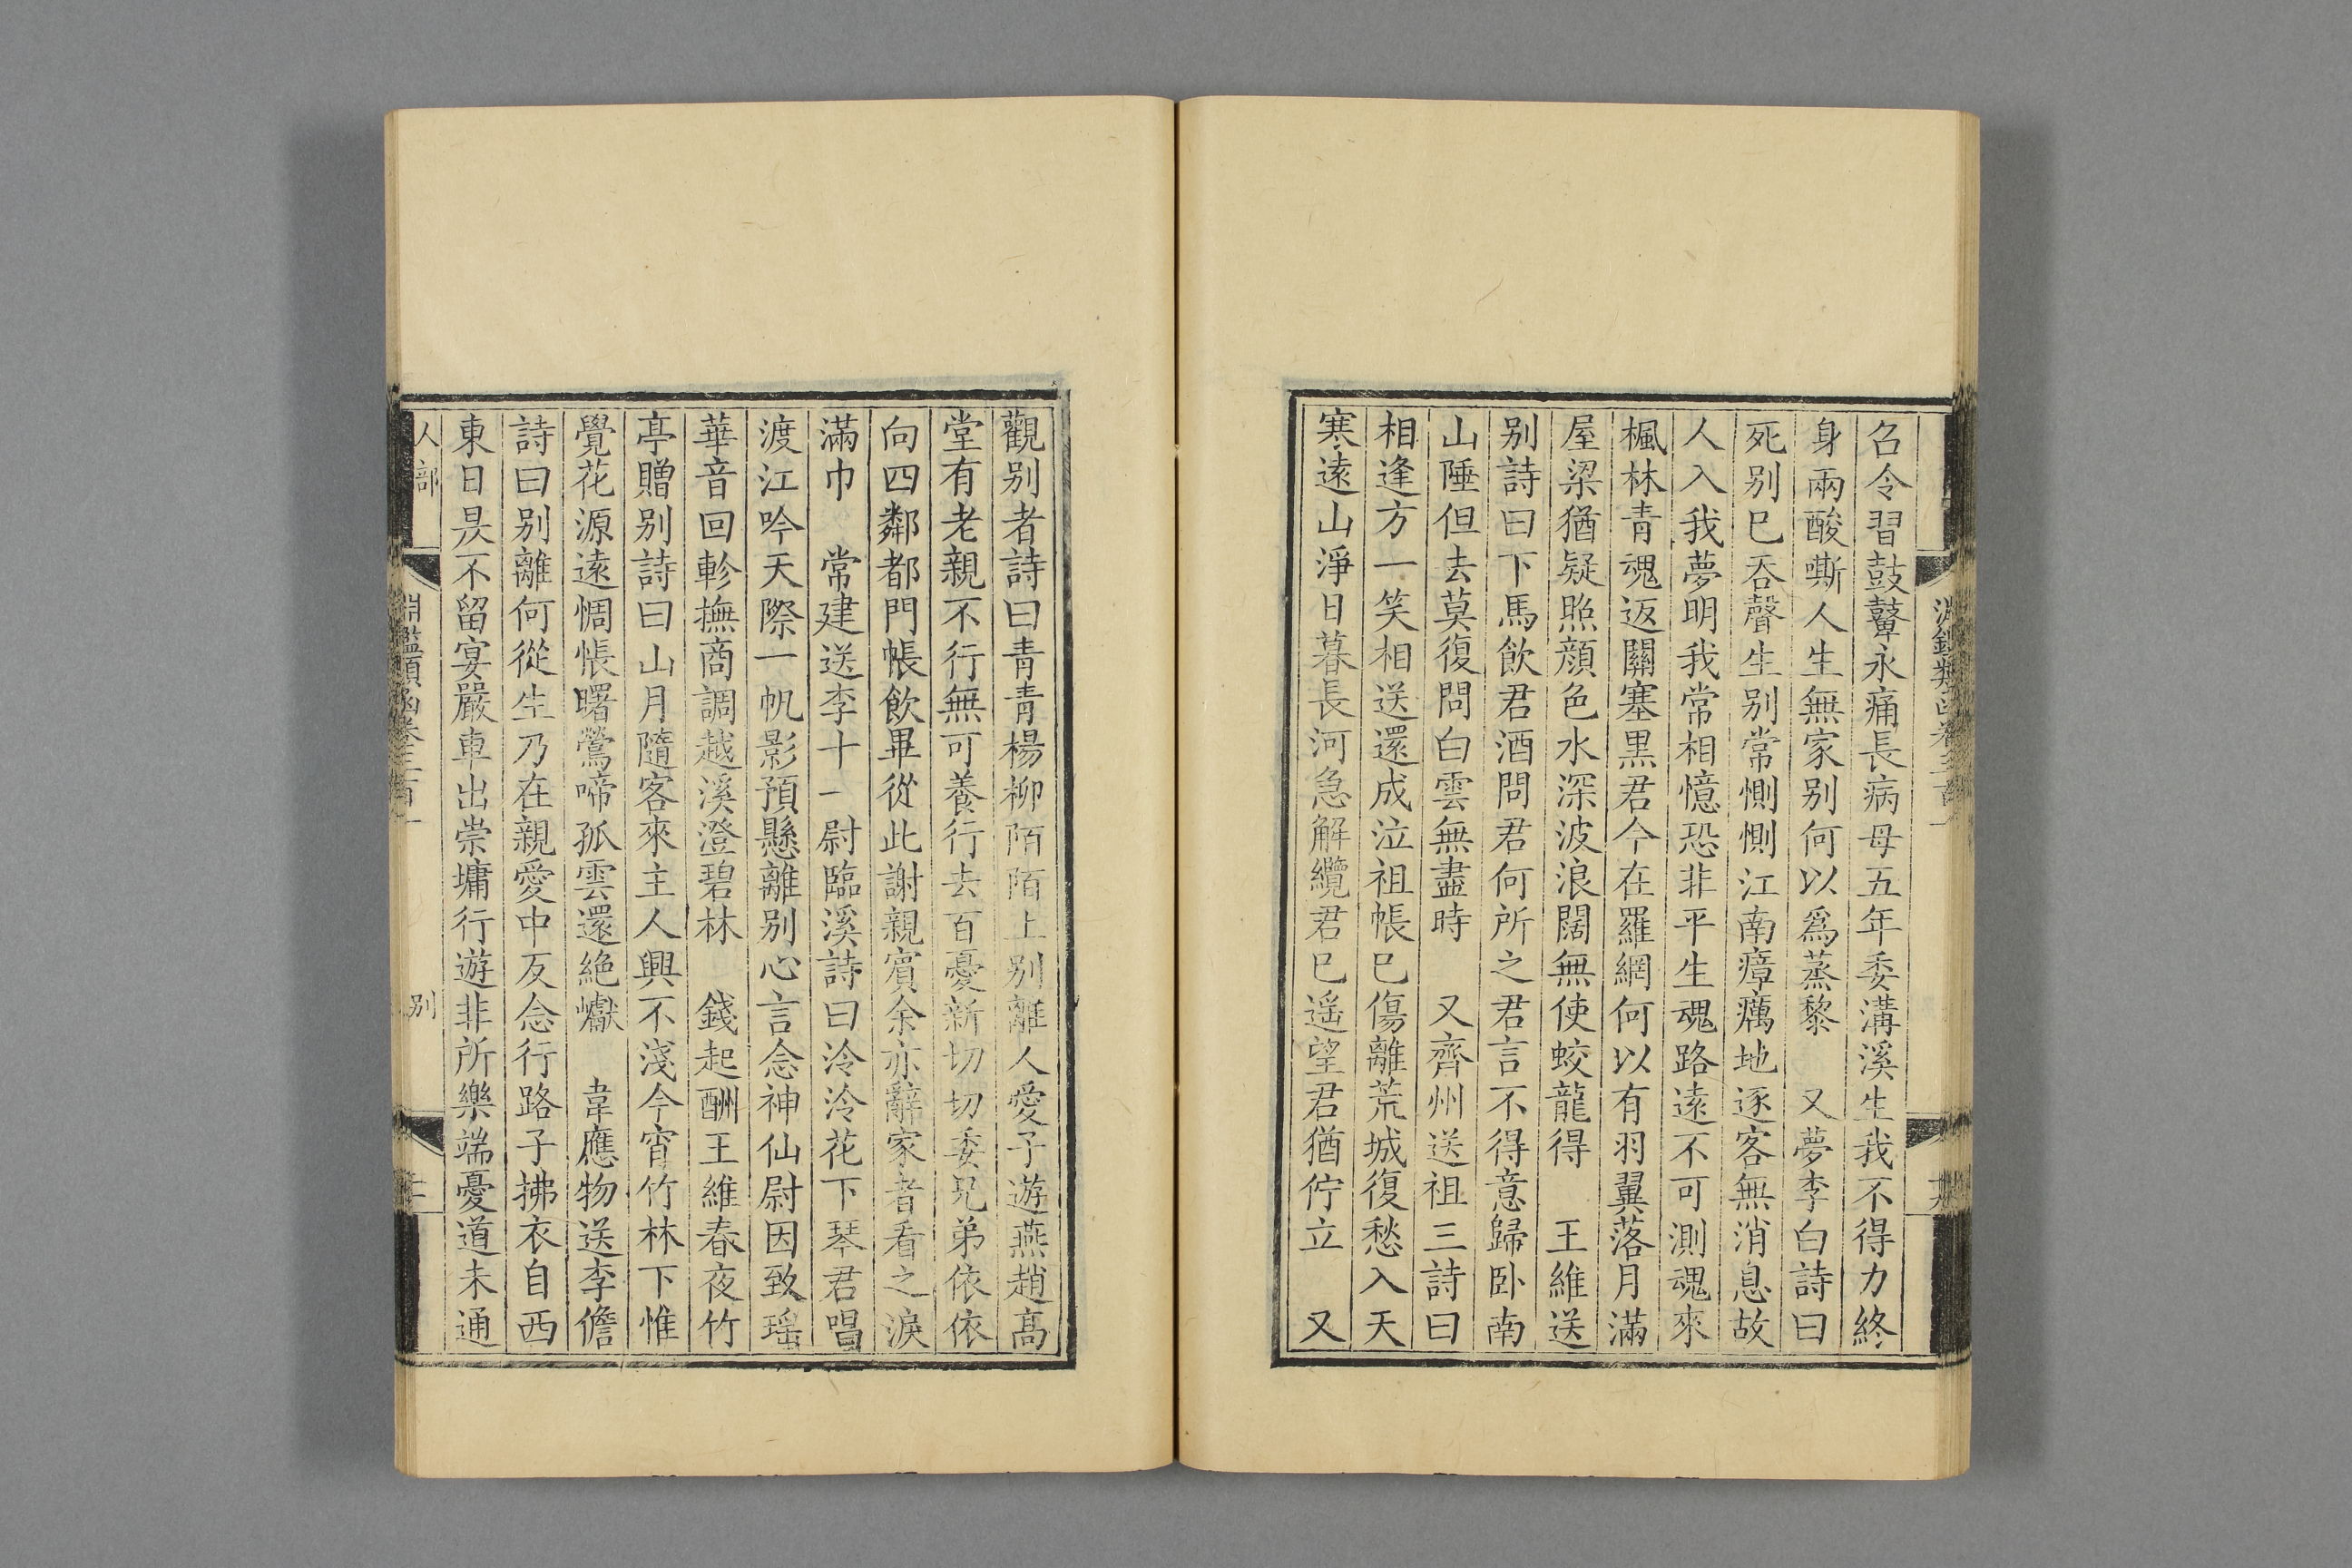 召令習鼓鼙永痛長病母五年委溝溪生我不得力終
身兩酸嘶人生無家别何以爲蒸黎　又夢李白詩曰
死别已吞聲生别常惻惻江南瘴癘地逐客無消息故
人入我夢明我常相憶恐非平生魂路遠不可測魂來
楓林青魂返關塞黒君今在羅網何以有羽翼落月滿
屋梁猶疑照顔色水深波浪闊無使蛟龍得　王維送
别詩曰下馬飲君酒問君何所之君言不得意歸卧南
山陲但去莫復問白雲無盡時　又齊州送祖三詩曰
相逢方一笑相送還成泣祖帳已傷離荒城復愁入天
寒遠山淨日暮長河急解纜君已遥望君猶佇立　又
觀别者詩曰青青楊柳陌陌上别離人愛子遊燕趙高
堂有老親不行無可養行去百憂新切切委兄弟依依
向四鄰都門帳飲畢從此謝親賓余亦辭家者看之淚
滿巾　常建送李十一尉臨溪詩曰泠泠花下琴君唱
渡江吟天際一帆影預懸離别心言念神仙尉因致瑶
華音回軫撫商調越溪澄碧林　錢起酬王維春夜竹
亭贈别詩曰山月隨客來主人興不淺今宵竹林下惟
覺花源遠惆悵曙鶯啼孤雲還絶巘　韋應物送李儋
詩曰别離何從生乃在親愛中反念行路子拂衣自西
東日昃不留宴嚴車出崇墉行遊非所樂端憂道未通
人部
淵鑑類函卷三百一
别